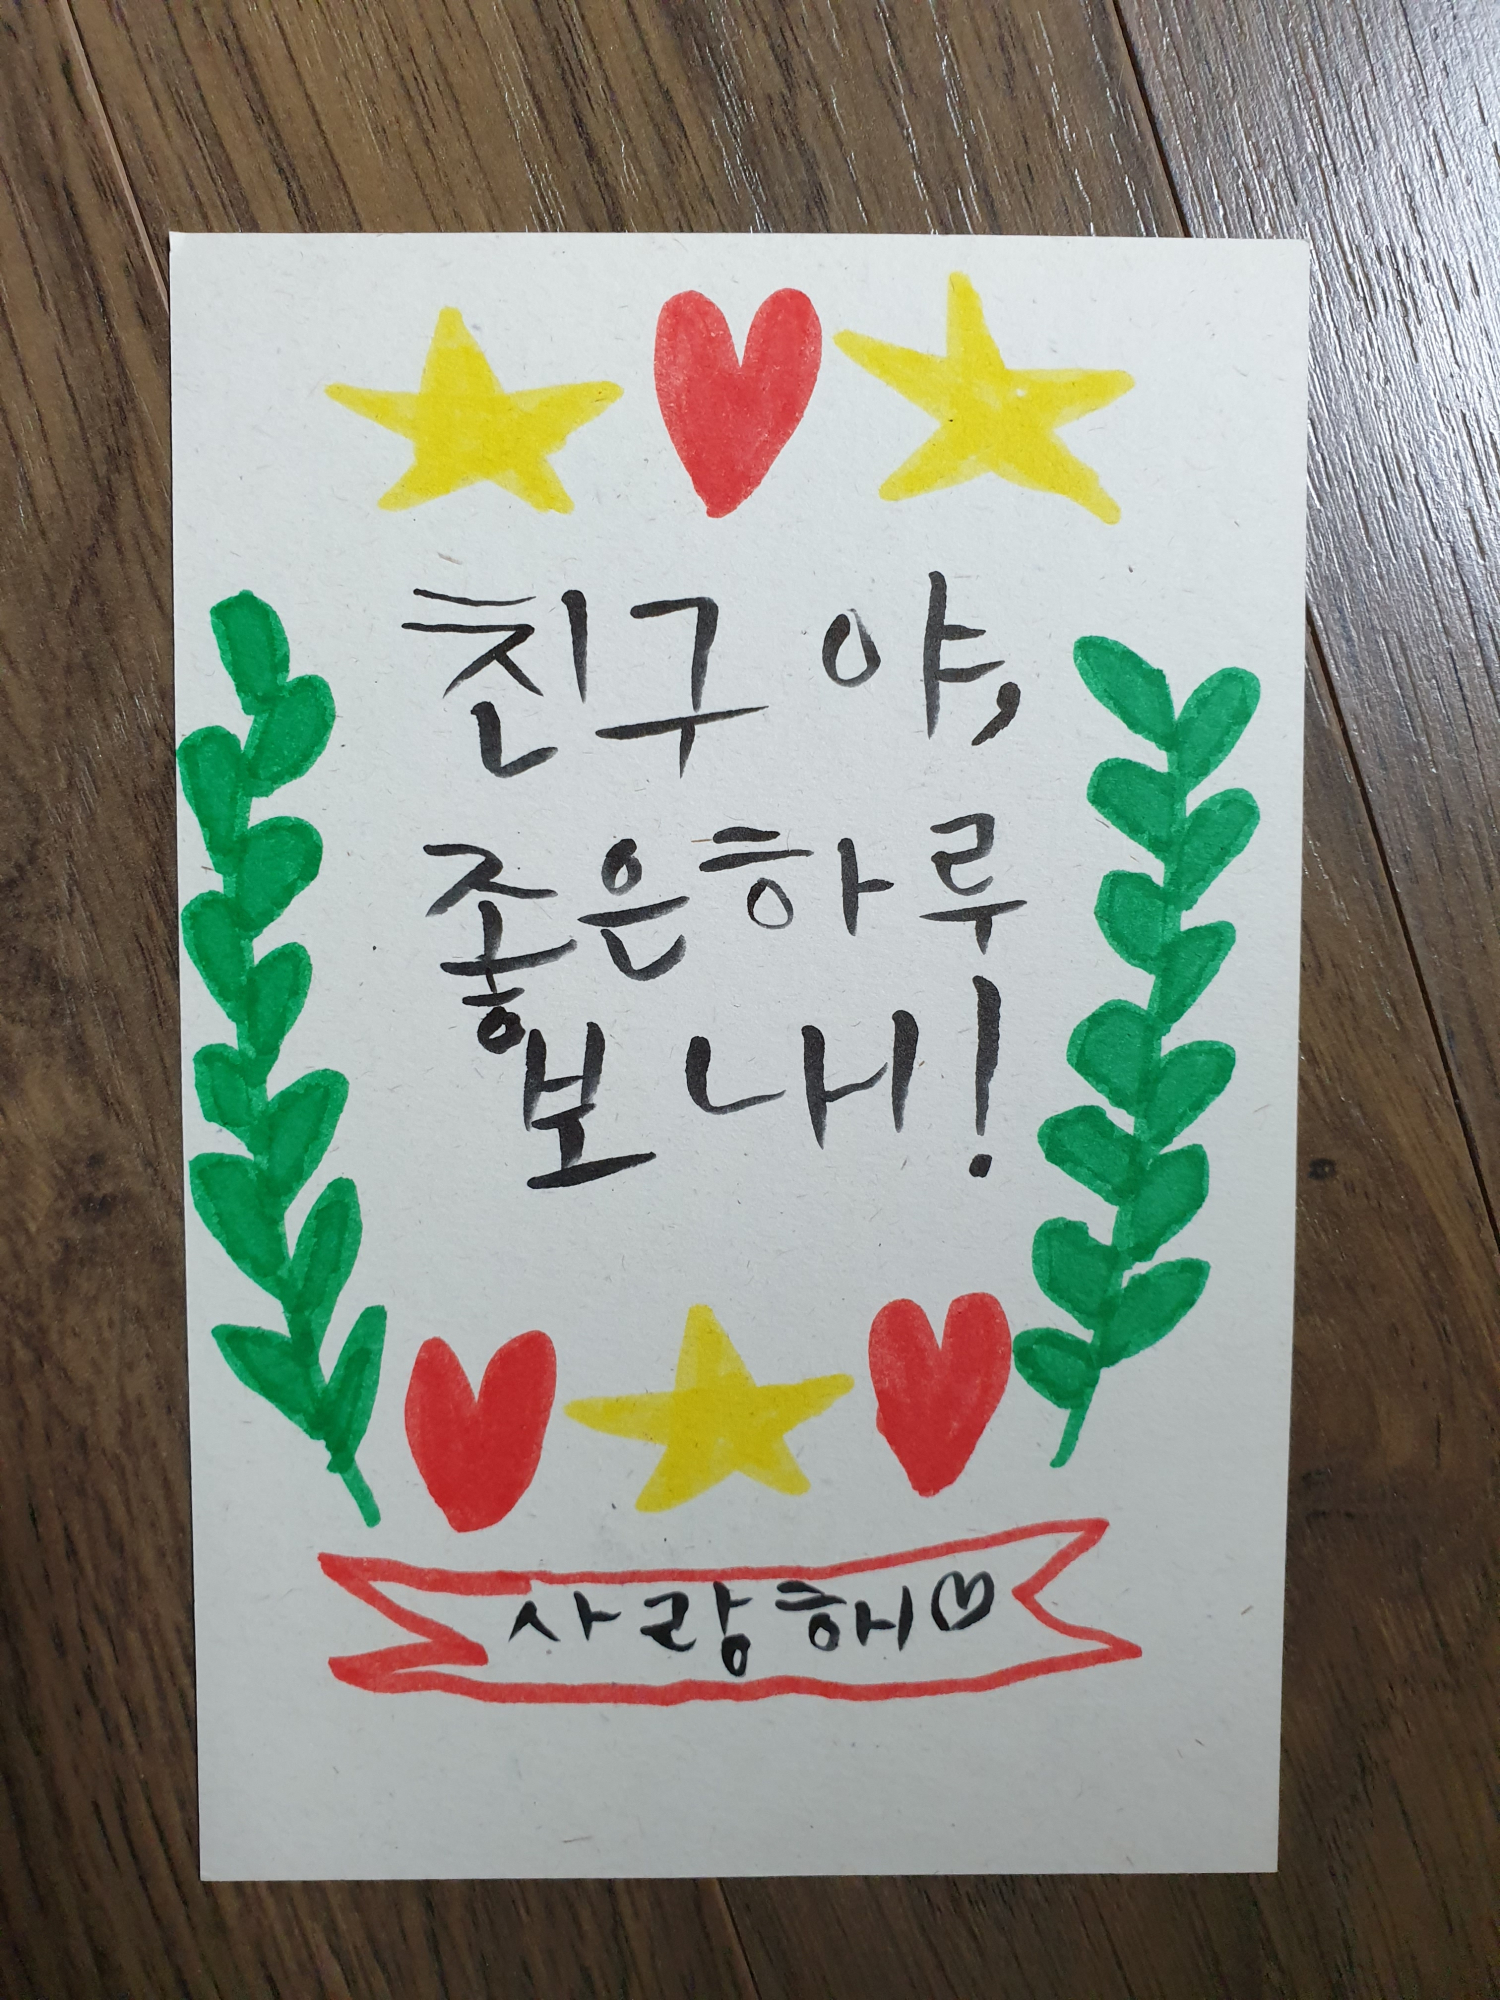 친구야,
좋은하루
보내!
사랑해♡